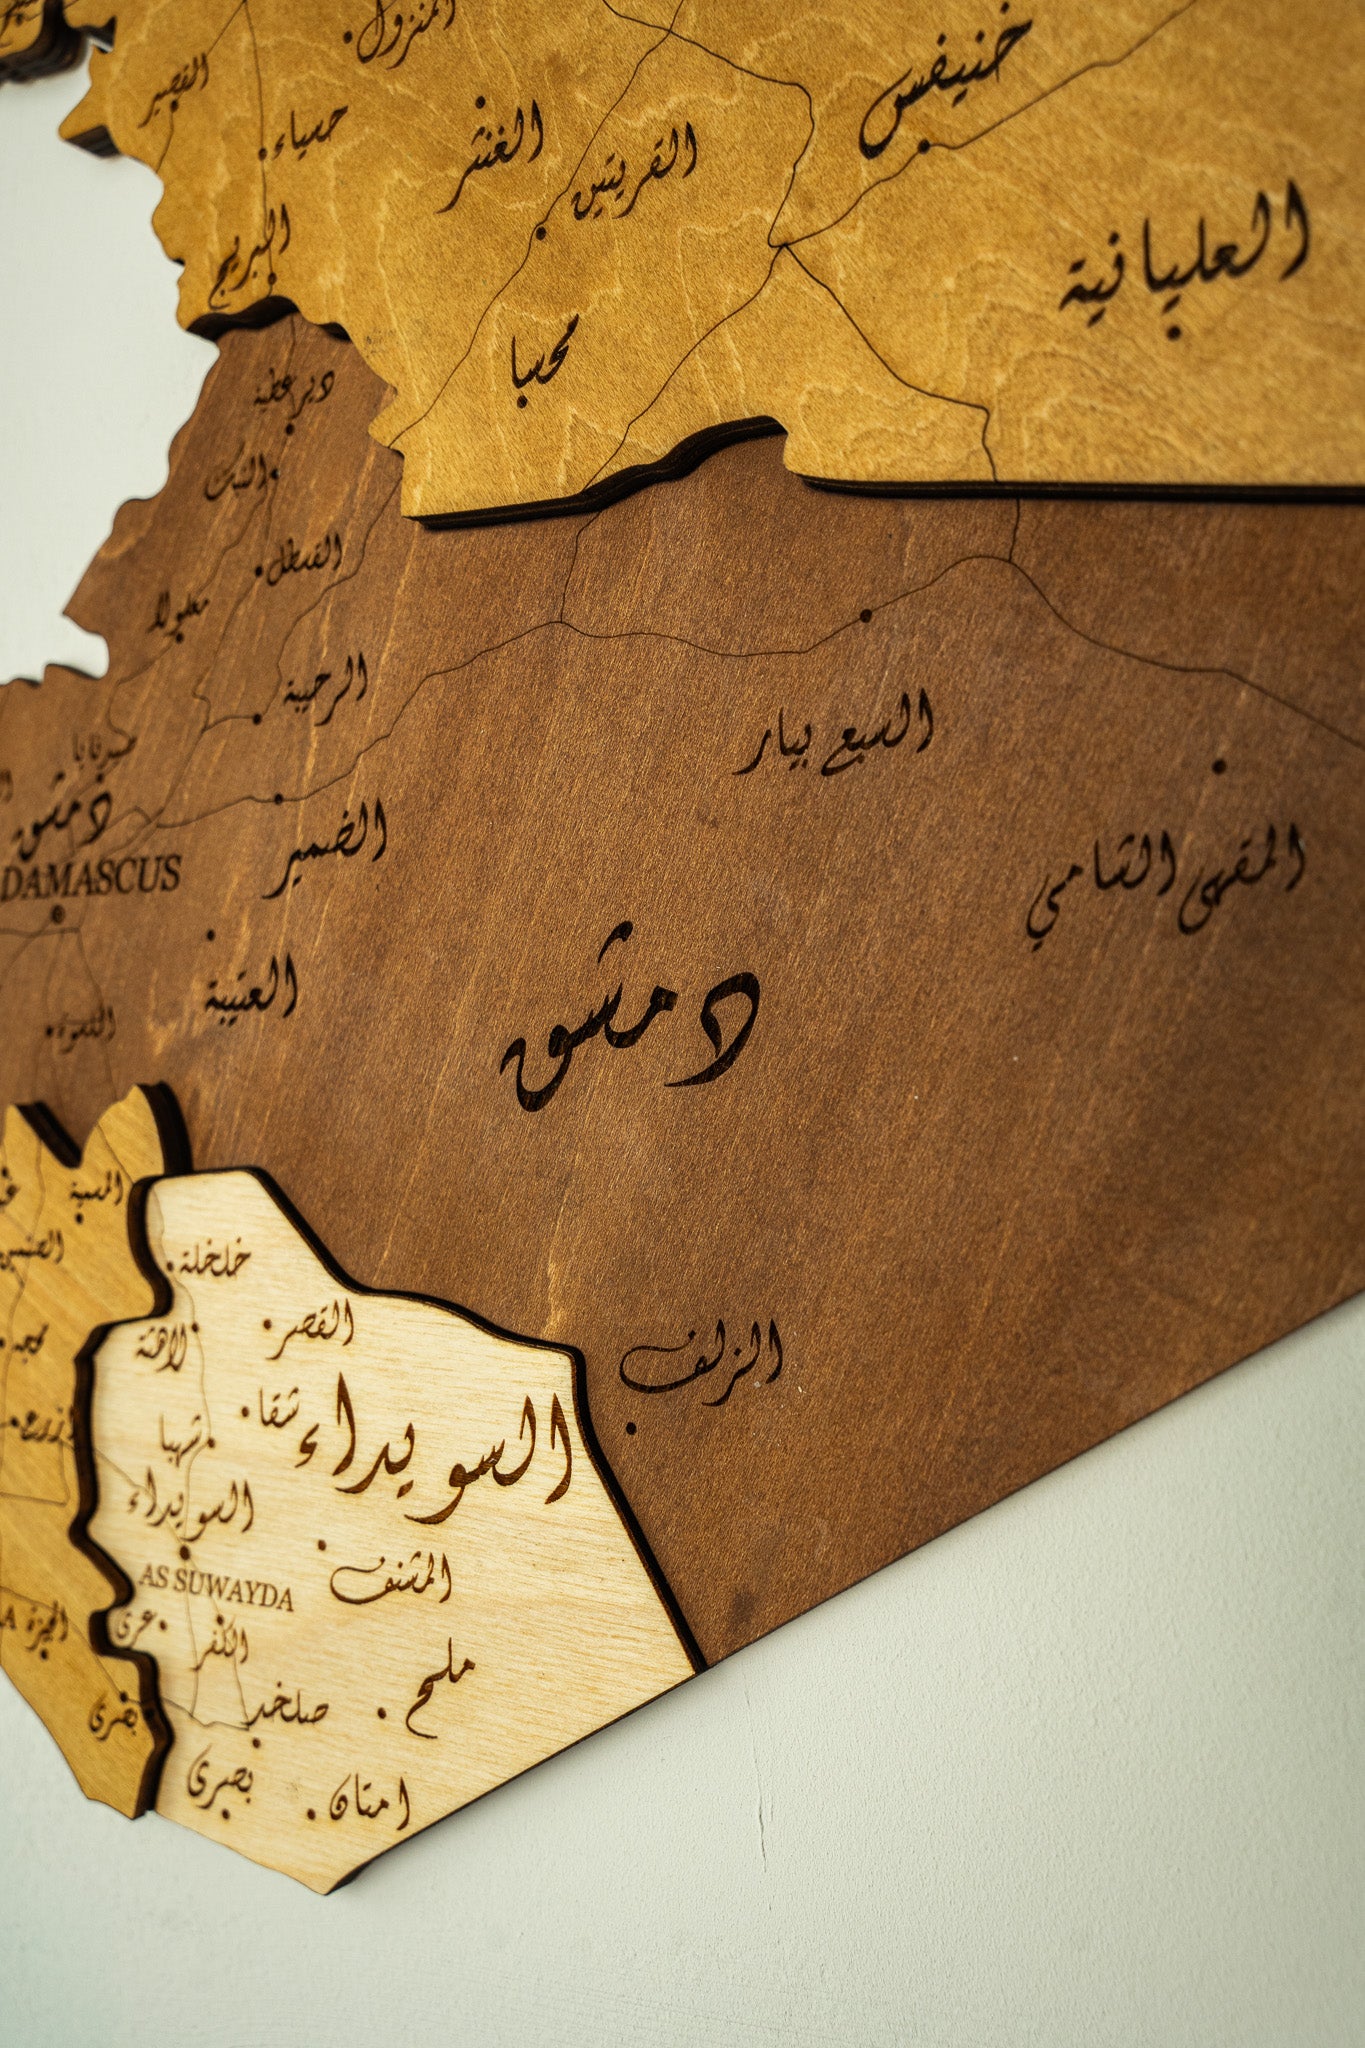 المنزول
القصير
حسياء
الغنثر
القريتين
خنيفس
البريج
العليانية
محسا
دير عطية
النبك
القسطل
معلولا
الرحيبة
السبع بيار
دمشق
DAMASCUS
الضمير
المقهى الشامي
العتيبة
دمشق
المسمية
الصنمين
خلخلة
القصر
لاهثة
الزلف
شقا
شهبا
السويداء
السويداء
AS SUWAYDA
المشنف
الجيزة
عرى
الكفر
ملح
صلخد
بصرى
بصرى
امتان